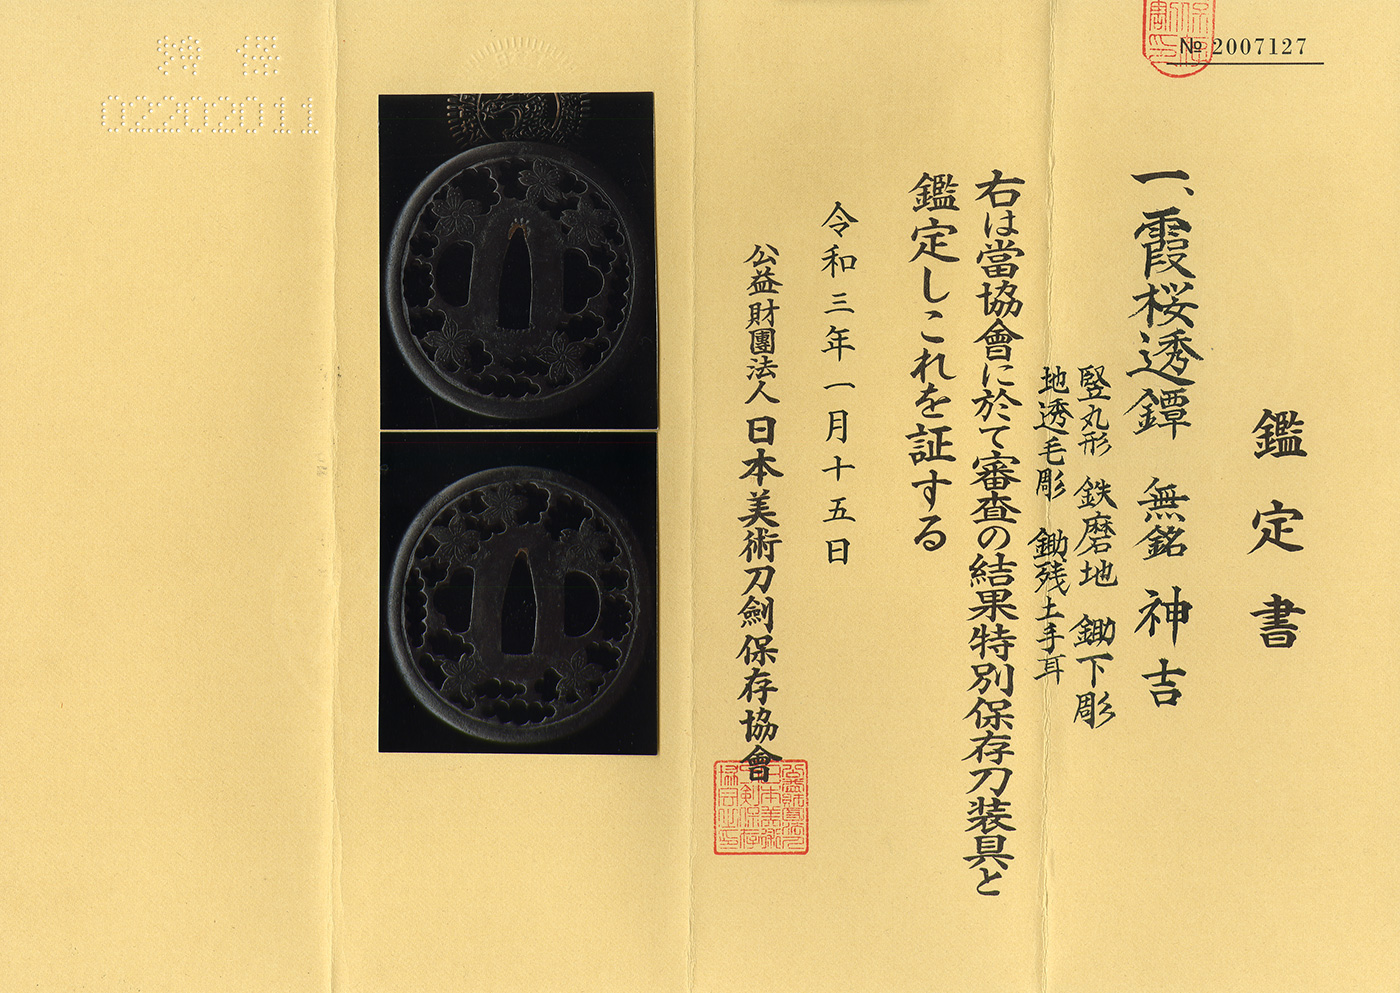 № 2007127
鑑定書
一、霞桜透鐔 無銘 神吉
竪丸形 鉄磨地 鋤下彫
地透毛彫 鋤残土手耳
右は當協會に於て審査の結果特別保存刀装具と
鑑定しこれを証する
令和三年一月十五日
公益財團法人 日本美術刀劍保存協會
02202011